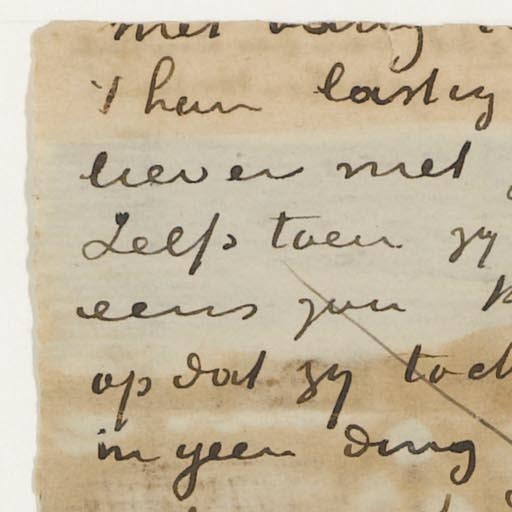 met
't hem lastig
liever met
Zelfs toen zy
eens zyn
opdat zy toch
in geen ding